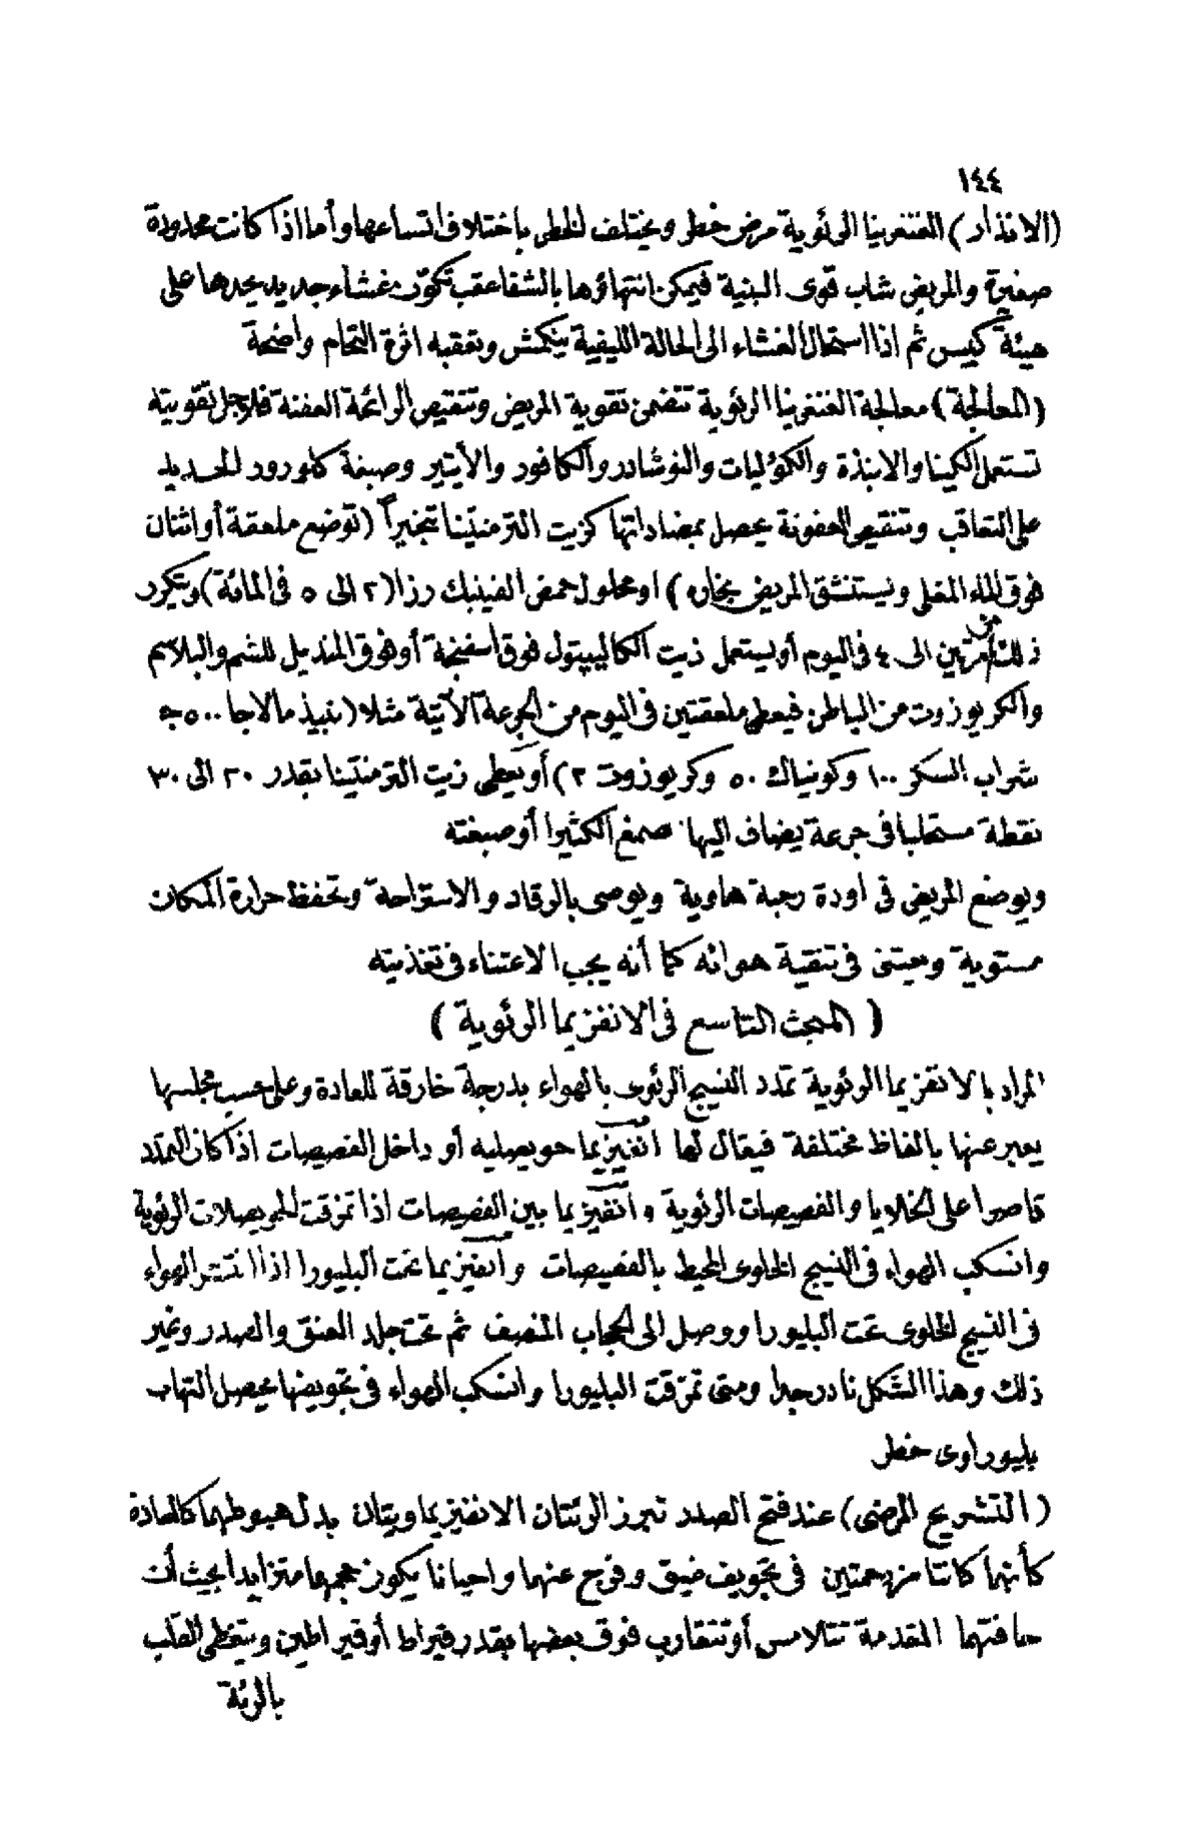 ١٤٤
(الانذار) الغنغرينا الرئوية مرض خطر ويختلف الخطر باختلاف اتساعها وأما اذا كانت محدودة
صغيرة والمريض شاب قوى البنية فيمكن انتهاؤها بالشفا عقب تكوّن غشاء جديد يحدها على
هيئة كيس ثم اذا استحال الغشاء الى الحالة الليفية ينكمش وتعقبه اثرة التحام واضحة
(المعالجة) معالجة الغنغرينا الرئوية تتضمن تقوية المريض وتنقيص الرائحة العفنة فلاجل تقويته
تستعمل الكينا والانبذة والكؤليات والنوشادر والكافور والأيتير وصبغة كلورور الحديد
على التعاقب وتنقيص العفونة يحصل بمضاداتها كزيت الترمنتينا تبخيراً (توضع ملعقة أو اثنان
فوق الماء المغلى ويستنشق المريض بخاره) او محلول حمض الفينيك رزا (٢ الى ٥ فى المائة) ويتكرر
ذلك من مرتين الى ٤ فى اليوم أو يستعمل زيت الكاليپتول فوق اسفنجة أو فوق المنديل للشم والبلاسم
والكريوزوت من الباطن فيعطى ملعقتين فى اليوم من الجرعة الآتية مثلا (نبيذ مالاجا ٥٠٠ جـ
شراب السكر ١٠٠ وكونياك ٥٠ وكريوزوت ٢) أو يعطى زيت الترمنتينا بقدر ٢٠ الى ٣٠
نقطة مستحلبا فى جرعة يضاف اليها صمغ الكثيرا أو صبغته
ويوضع المريض فى اودة رحبة هاوية ويوصى بالرقاد والاستراحة وتحفظ حرارة المكان
مستوية ويعتنى فى تنقية هوائه كما أنه يجب الاعتناء فى تغذيته
( المبحث التاسع فى الانفزيما الرئوية )
المراد بالانفزيما الرئوية تمدد النسيج الرئوى بالهواء بدرجة خارقة للعادة وعلى حسب مجلسها
يعبر عنها بالفاظ مختلفة فيقال لها انفيزيما حويصليه أو داخل الفصيصات اذا كان التمدد
قاصرا على الخلايا والفصيصات الرئوية وانفيزيما بين الفصيصات اذا تمزقت الحويصلات الرئوية
وانسكب الهواء فى النسيج الخلوى المحيط بالفصيصات وانفيزيما تحت البليورا اذا انتشر الهواء
فى النسيج الخلوى تحت البليورا ووصل الى الحجاب المنصف ثم تحت جلد العنق والصدر وغير
ذلك وهذا الشكل نادر جدا ومتى تمزقت البليورا وانسكب الهواء فى تجويفها يحصل التهاب
بليوراوى خطر
(التشريح المرضى) عند فتح الصدر تبرز الرئتان الانفيزيماويتان بدل هبوطهما كالعادة
كأنهما كانتا مزدحمتين فى تجويف ضيق وفرج عنهما واحيانا يكون حجمهما متزايدا بحيث أن
حافتهما المقدمة تتلامس أو تتقارب فوق بعضها بقدر قيراط أو قيراطين ويتغطى القلب
بالرئة